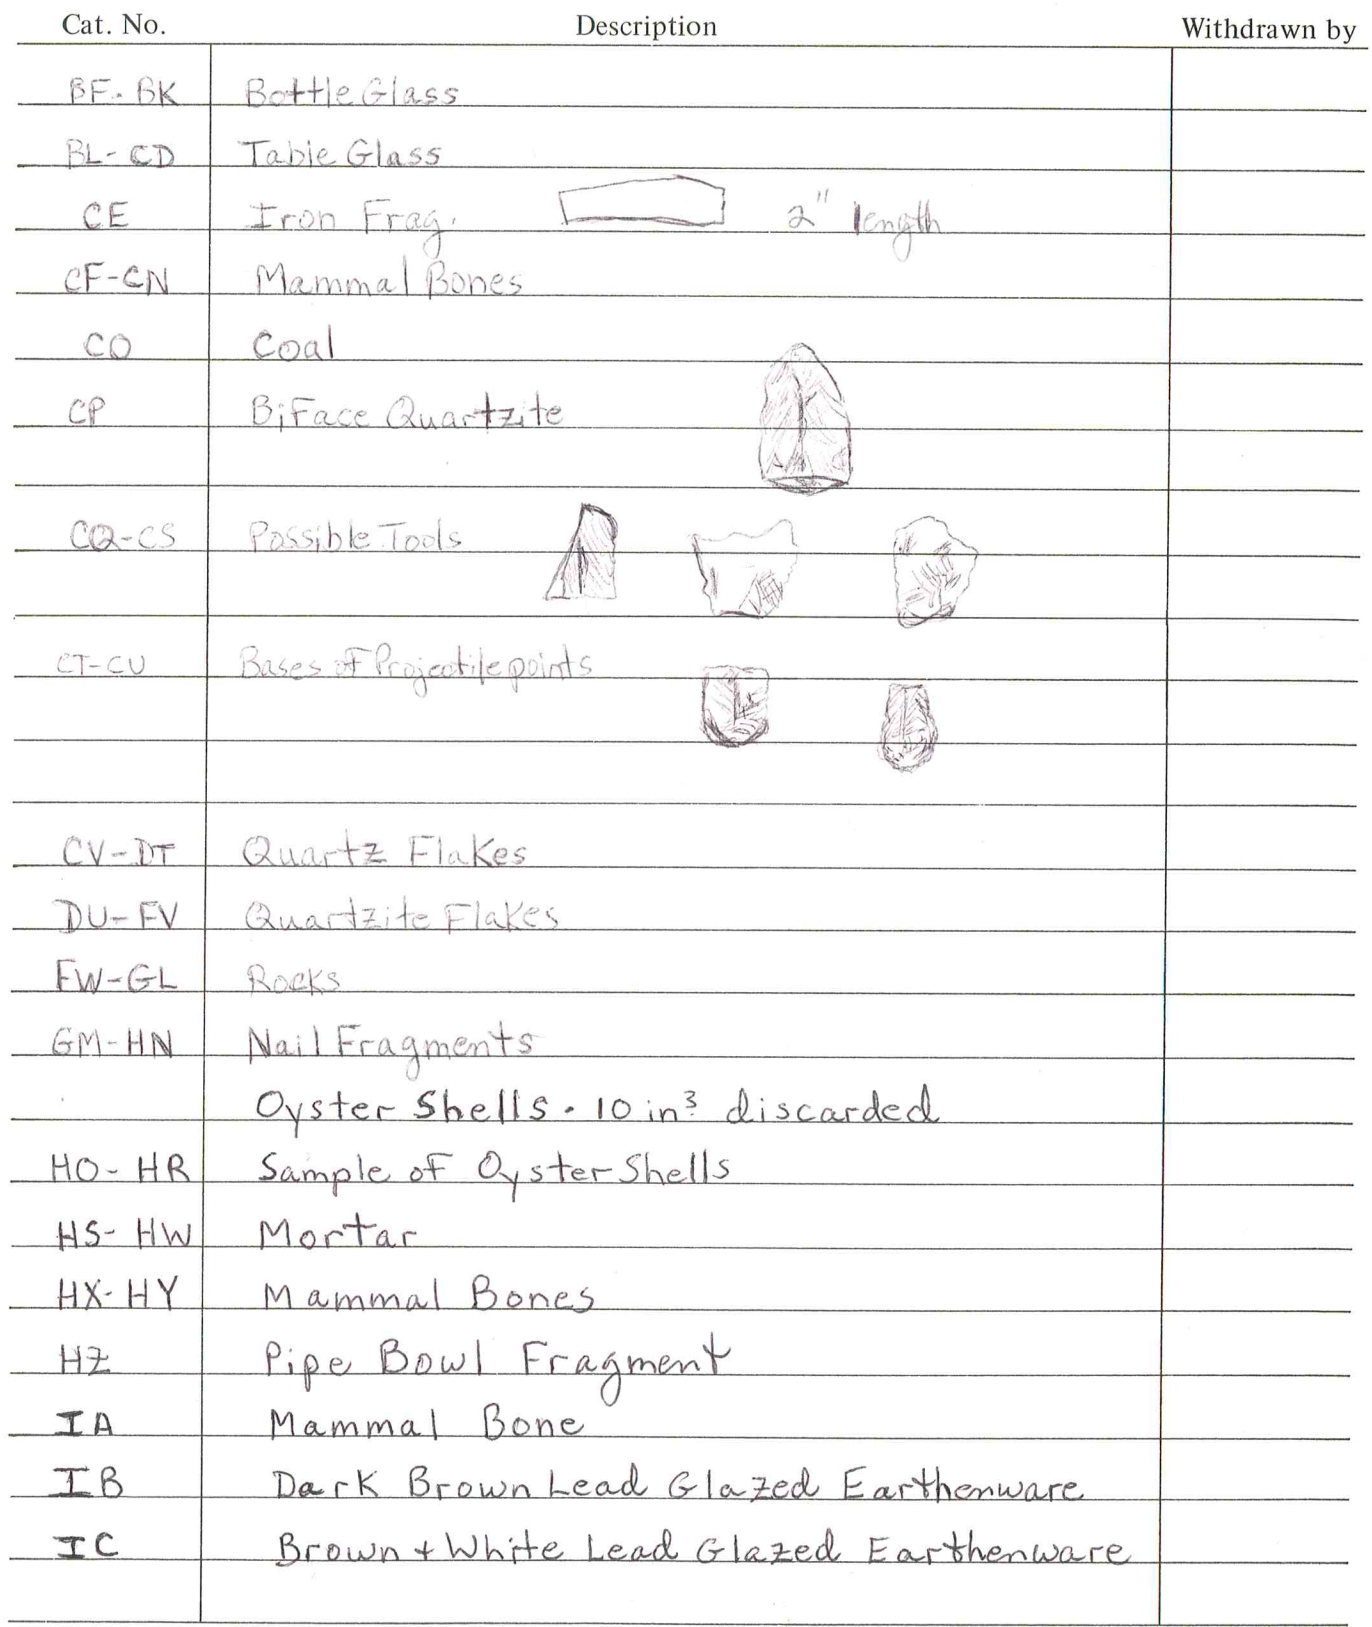 Cat. No. Description Withdrawn by
BF-BK Bottle Glass
BL-CD Table Glass
CE Iron Frag. 2" length
CF-CN Mammal Bones
CO Coal
CP BiFace Quartzite
CQ-CS Possible Tools
CT-CU Bases of Projectile points
CV-DT Quartz Flakes
DU-FV Quartzite Flakes
FW-GL Rocks
GM-HN Nail Fragments
Oyster Shells. 10 in³ discarded
HO-HR Sample of Oyster Shells
HS-HW Mortar
HX-HY Mammal Bones
HZ Pipe Bowl Fragment
IA Mammal Bone
IB Dark Brown Lead Glazed Earthenware
IC Brown + White Lead Glazed Earthenware